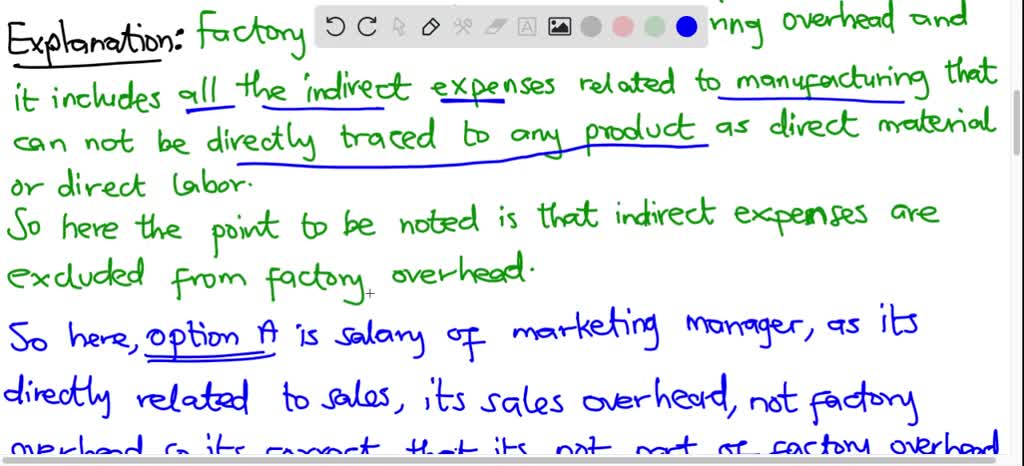 Explanation: Factory ring overhead and
it includes all the indirect expenses related to manufacturing that
can not be directly traced to any product as direct material
or direct labor.
So here the point to be noted is that indirect expenses are
excluded from factory overhead.
So here, option A is salary of marketing manager, as its
directly related to sales, its sales overhead, not factory
overhead so its correct that its not part of factory overhead